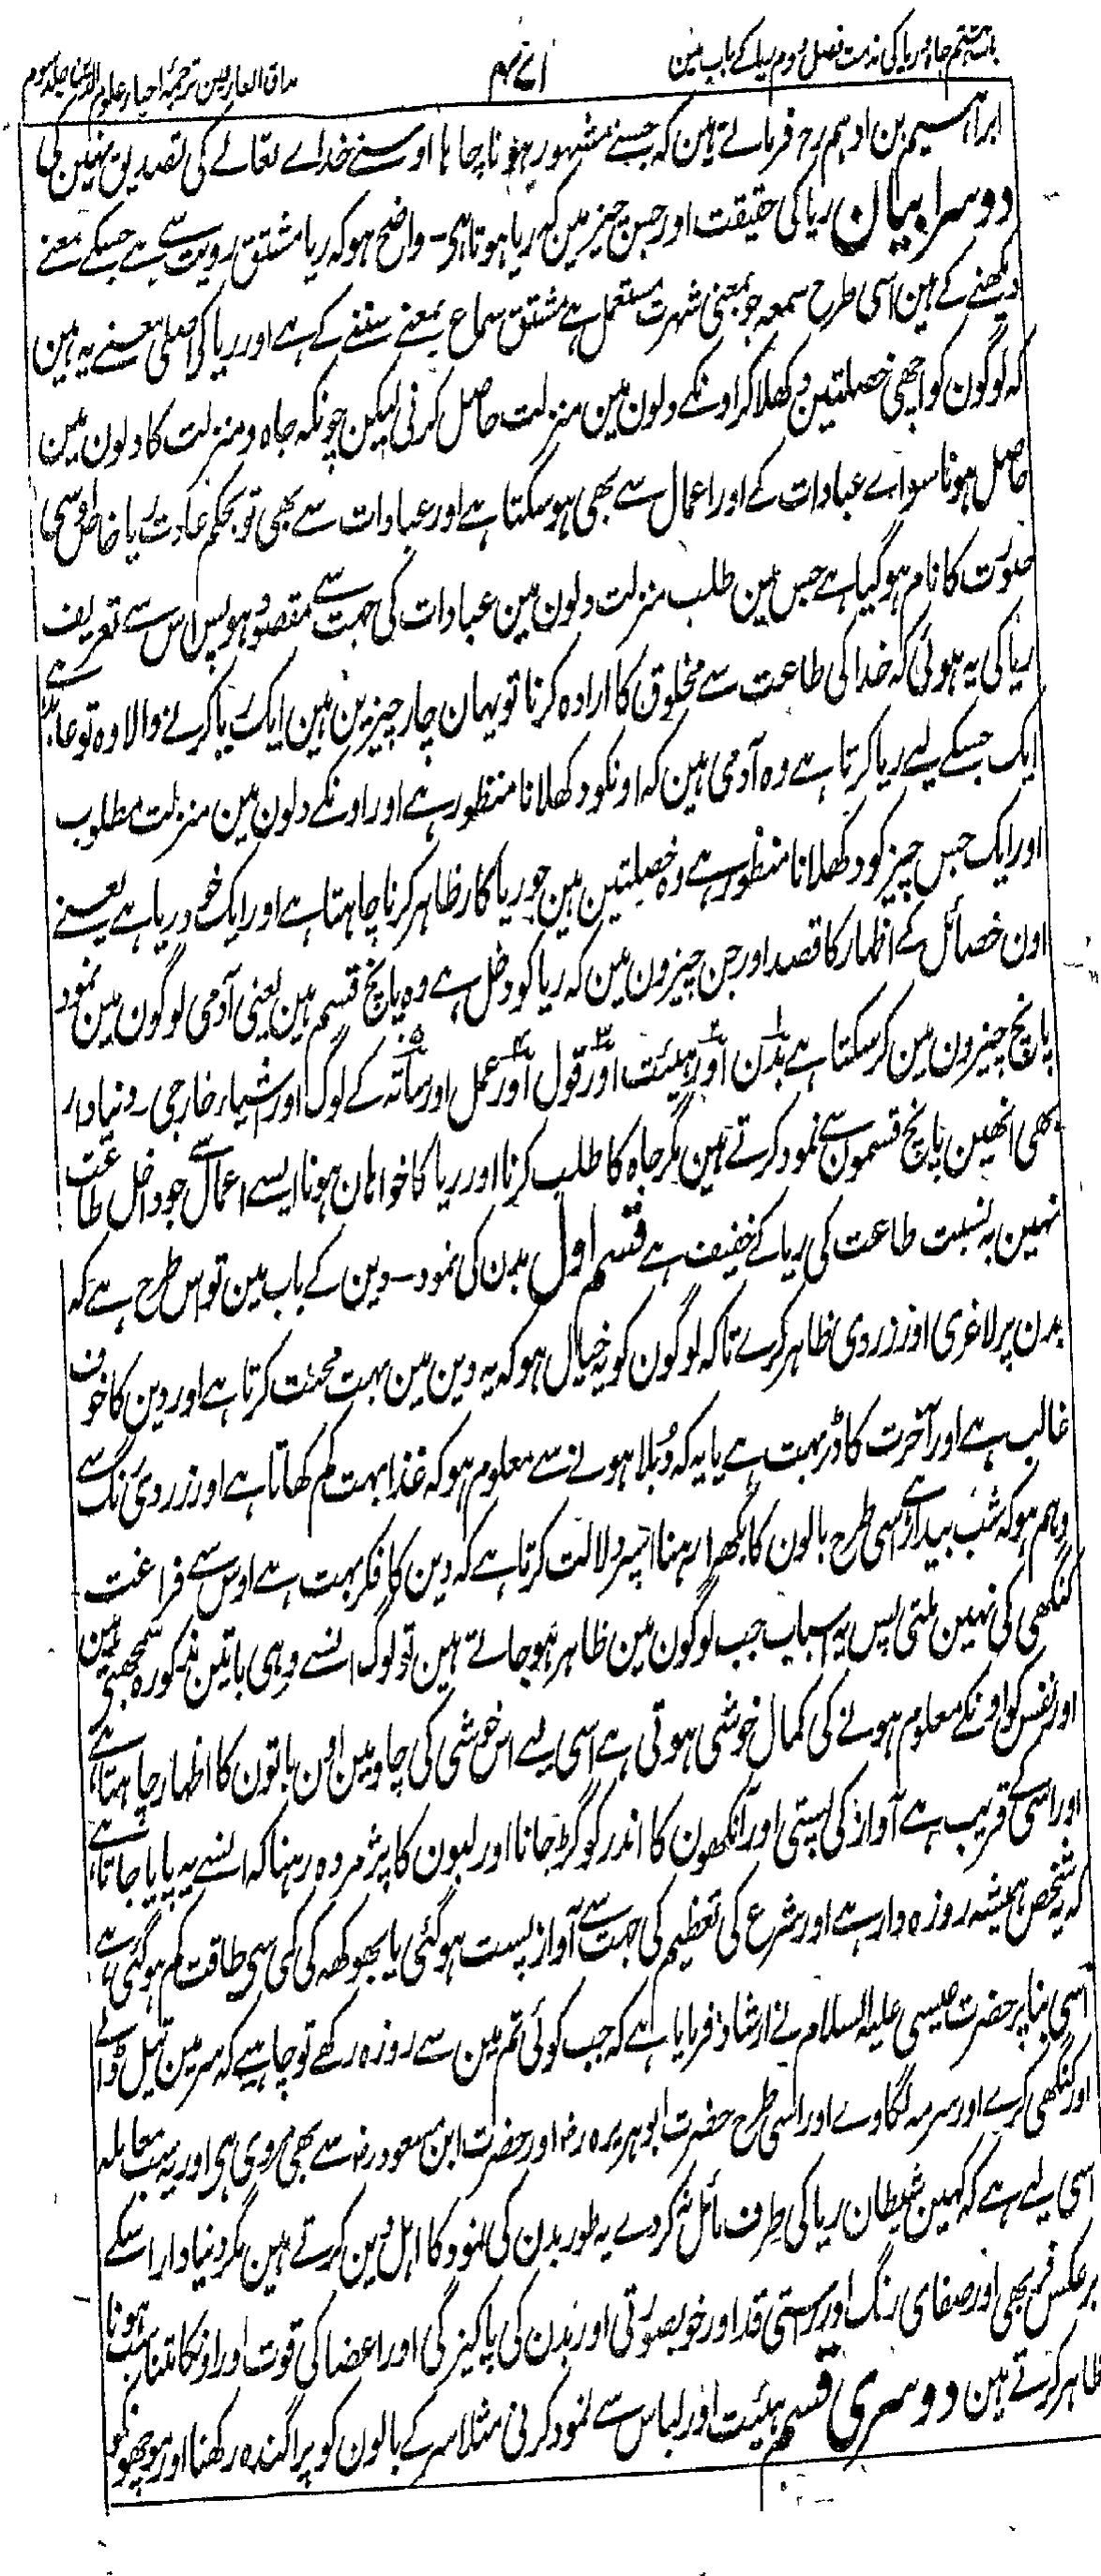 باب ہشتم جاہ و ریا کی مذمت فصل دوم ریا کے باب مین
مذاق العارفین ترجمہ احیاء علوم الدین جلد سوم
ابراہیم بن ادہم رح فرماتے ہین کہ جسنے مشہور ہونا چاہا اوسنے خداے تعالے کی تصدیق نہین کی
دوسرا بیان ریا کی حقیقت اور جس چیز مین کہ ریا ہوتا ہی ۔ واضح ہو کہ ریا مشتق رویت سے ہے جسکے معنے
دیکھنے کے ہین اسی طرح سمعہ جو بمعنی شہرت مستعمل ہے مشتق سماع بمعنے سننے کے ہے اور ریا کی اصلی معنے یہ ہین
کہ لوگون کو اچھی خصلتین دکھلا کر اونکے دلون مین منزلت حاصل کرنی لیکن چونکہ جاہ و منزلت کا دلون مین
حاصل ہونا سواے عبادات کے اور اعمال سے بھی ہو سکتا ہے اور عبادات سے بھی تو بحکم عادت ریا خاص اوسی
صورت کا نام ہو گیا ہے جس مین طلب منزلت دلون مین عبادات کی جہت سے مقصود ہو پس اس سے تعریف
ریا کی یہ ہوئی کہ خدا کی طاعت سے مخلوق کا ارادہ کرنا تو یہان چار چیزین ہین ایک ریا کرنے والا وہ تو عابد ہے
ایک جسکے لیے ریا کرتا ہے وہ آدمی ہین کہ اونکو دکھلانا منظور ہے اور اونکے دلون مین منزلت مطلوب
اور ایک جس چیز کو دکھلانا منظور ہے وہ خصلتین ہین جو ریا کار ظاہر کرنا چاہتا ہے اور ایک خود ریا ہے یعنے
اون خصائل کے اظہار کا قصد اور جن چیزون مین کہ ریا کو دخل ہے وہ پانچ قسم ہین یعنی آدمی لوگون مین نمود
پانچ چیزون مین کر سکتا ہے بدن اور ہیئت اور قول اور عمل اور ساتھ کے لوگ اور اشیاء خارجی ۔ دنیا دار
بھی انھین پانچ قسمون سے نمود کرتے ہین مگر جاہ کا طلب کرنا اور ریا کا خواہان ہونا ایسے اعمال سے جو داخل طاعت
نہین بہ نسبت طاعت کی ریا کے خفیف ہے قسم اول بدن کی نمود ۔ دین کے باب مین تو اس طرح ہے کہ
بدن پر لاغری اور زردی ظاہر کرے تاکہ لوگون کو یہ خیال ہو کہ یہ دین مین بہت محنت کرتا ہے اور دین کا خوف
غالب ہے اور آخرت کا ڈر بہت ہے یا یہ کہ دُبلا ہونے سے معلوم ہو کہ غذا بہت کم کھاتا ہے اور زردی رنگ سے
وہم ہو کہ شب بیدار ہے اسی طرح بالون کا بکھرا رہنا اسپر دلالت کرتا ہے کہ دین کا فکر بہت ہے اوس سے فراغت
کنگھی کی نہین ملتی پس یہ اسباب جب لوگون مین ظاہر ہو جاتے ہین تو لوگ انسے وہی باتین مذکورہ سمجھتے ہین
اور نفس کو اونکے معلوم ہونے کی کمال خوشی ہوتی ہے اسی لیے اس خوشی کی چاہ مین اون باتون کا اظہار چاہتا ہے
اور اسی کے قریب ہے آواز کی پستی اور آنکھون کا اندر کو گڑ جانا اور لبون کا پژمردہ رہنا کہ انسے یہ پایا جاتا ہے
کہ یہ شخص ہمیشہ روزہ دار ہے اور شرع کی تعظیم کی جہت سے آواز پست ہو گئی یا بھوکھ کی کمی سی طاقت کم ہو گئی ہے
اسی بنا پر حضرت عیسی علیہ السلام نے ارشاد فرمایا ہے کہ جب کوئی تم مین سے روزہ رکھے تو چاہیے کہ سر مین تیل ڈالے
اور کنگھی کرے اور سرمہ لگاوے اور اسی طرح حضرت ابو ہریرہ رض اور حضرت ابن مسعود رض سے بھی مروی ہی اور یہ سب معاملہ
اسی لیے ہے کہ کہین شیطان ریا کی طرف مائل نکردے یہ طور بدن کی نمود کا اہل دین کرتے ہین مگر دنیا دار اسکے
برعکس فربہی اور صفای رنگ اور راستی قد اور خوبصورتی اور بدن کی پاکیزگی اور اعضا کی قوت اور اونکا متناسب ہونا
ظاہر کرتے ہین دوسری قسم ہیئت اور لباس سے نمود کرنی مثلا سر کے بالون کو پراگندہ رکھنا اور موچھونکو